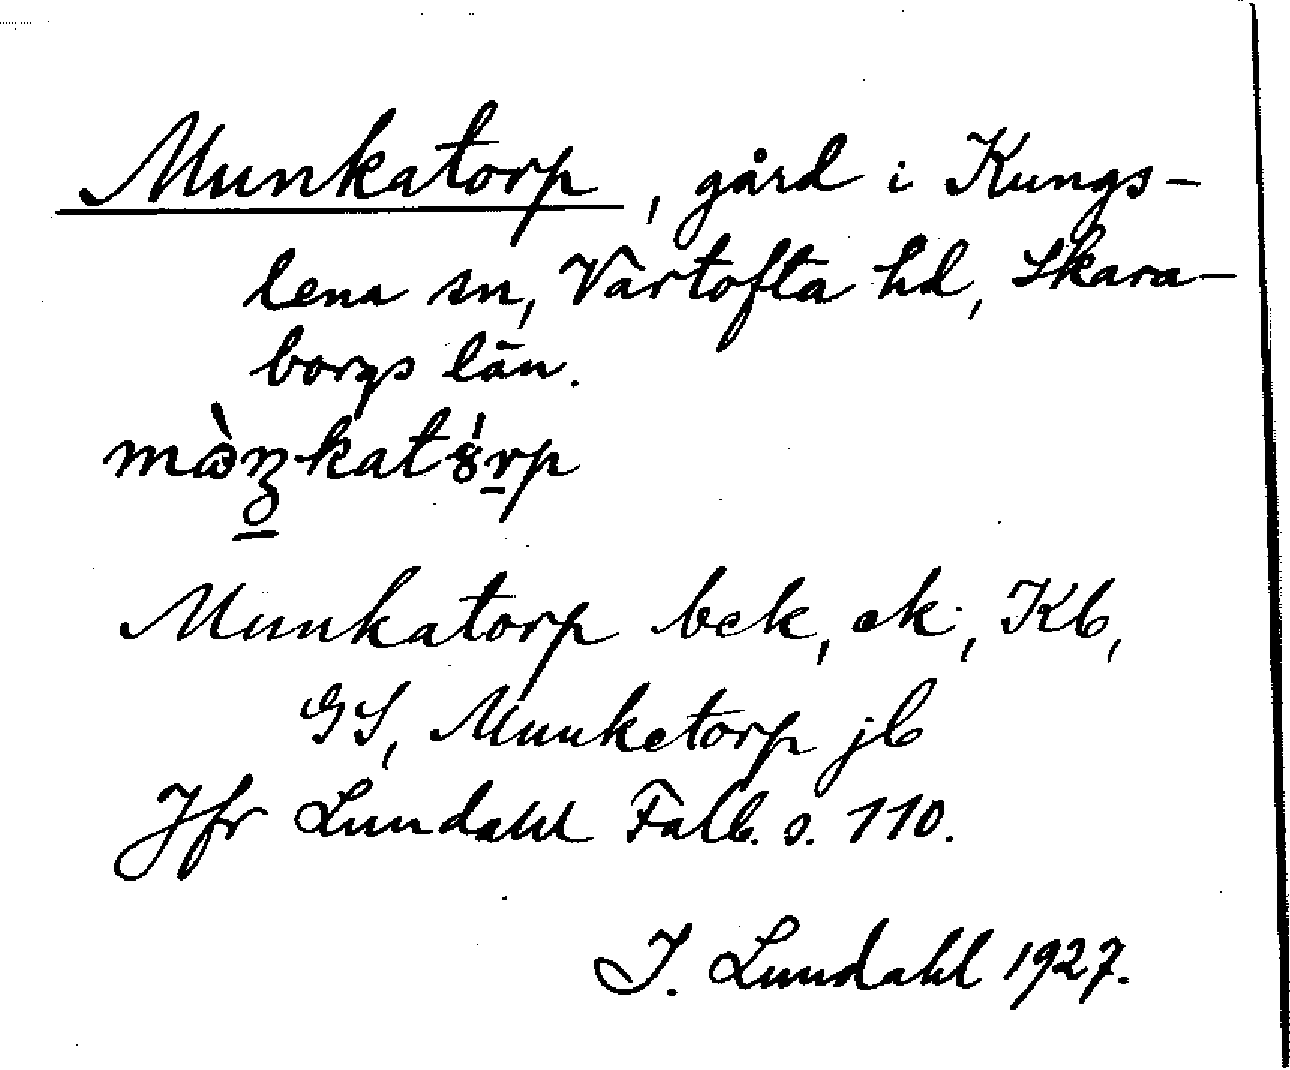 Munkatorp, gård i Kungs-
lena sn, Vartofta hd, Skara-
borgs län.
Munkatorp bek, ek, Kb,
GS, Munketorp jb
Jfr Lundahl Falb. s. 110.
I. Lundahl 1927.